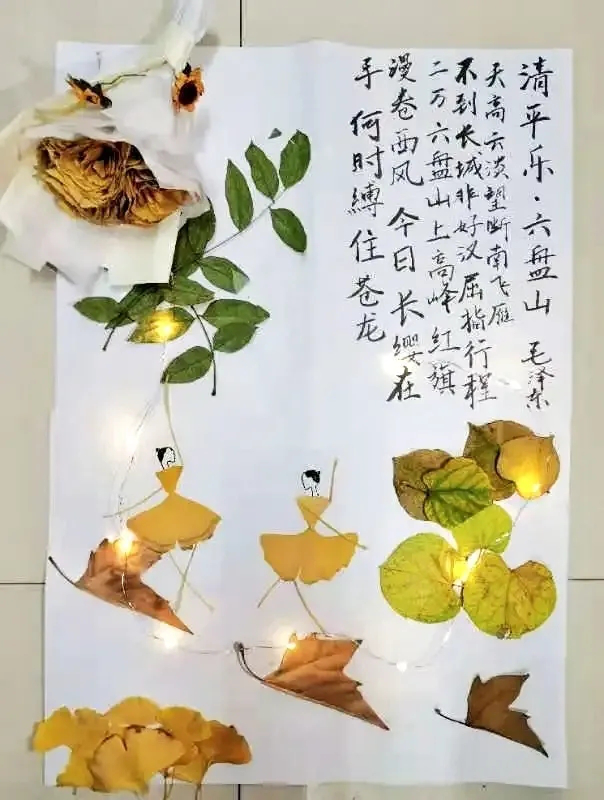 清平乐·六盘山 毛泽东
天高云淡望断南飞雁
不到长城非好汉屈指行程
二万 六盘山上高峰 红旗
漫卷西风 今日长缨在
手 何时縛住苍龙